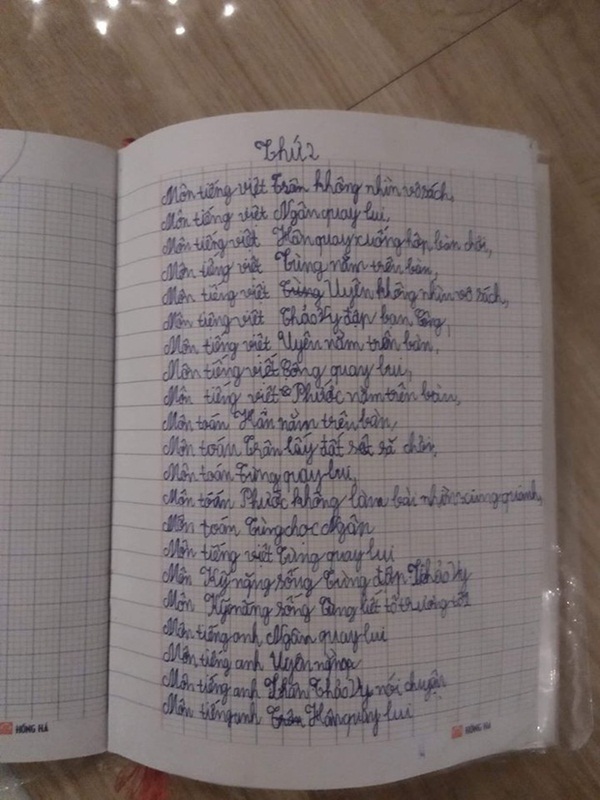 Thứ 2
Môn tiếng việt Trân không nhìn vô sách,
Môn tiếng việt Ngân quay lui,
Môn tiếng việt Hân quay xuống hộp bàn chơi,
Môn tiếng việt Tùng nằm trên bàn,
Môn tiếng việt Tùng Uyên không nhìn vô sách,
Môn tiếng việt Thảo Vy đập bạn Công,
Môn tiếng việt Uyên nằm trên bàn,
Môn tiếng việt Công quay lui,
Môn tiếng việt Phước nằm trên bàn,
Môn toán Hân nằm trên bàn,
Môn toán Trân lấy đất sét ra chơi,
Môn toán Tùng quay lui,
Môn toán Phước không làm bài nhìn xung quanh,
Môn toán Tùng chọc Ngân
Môn tiếng việt Tùng quay lui
Môn Kỹ nặng sống Tùng đập Thảo Vy
Môn Kỹ năng sống Tùng tổ trưởng
Môn tiếng anh Ngân quay lui
Môn tiếng anh Uyên
Môn tiếng anh Thảo Vy nói chuyện
Môn tiếng anh Trân Hân quay lui
HỒNG HÀ HỒNG HÀ